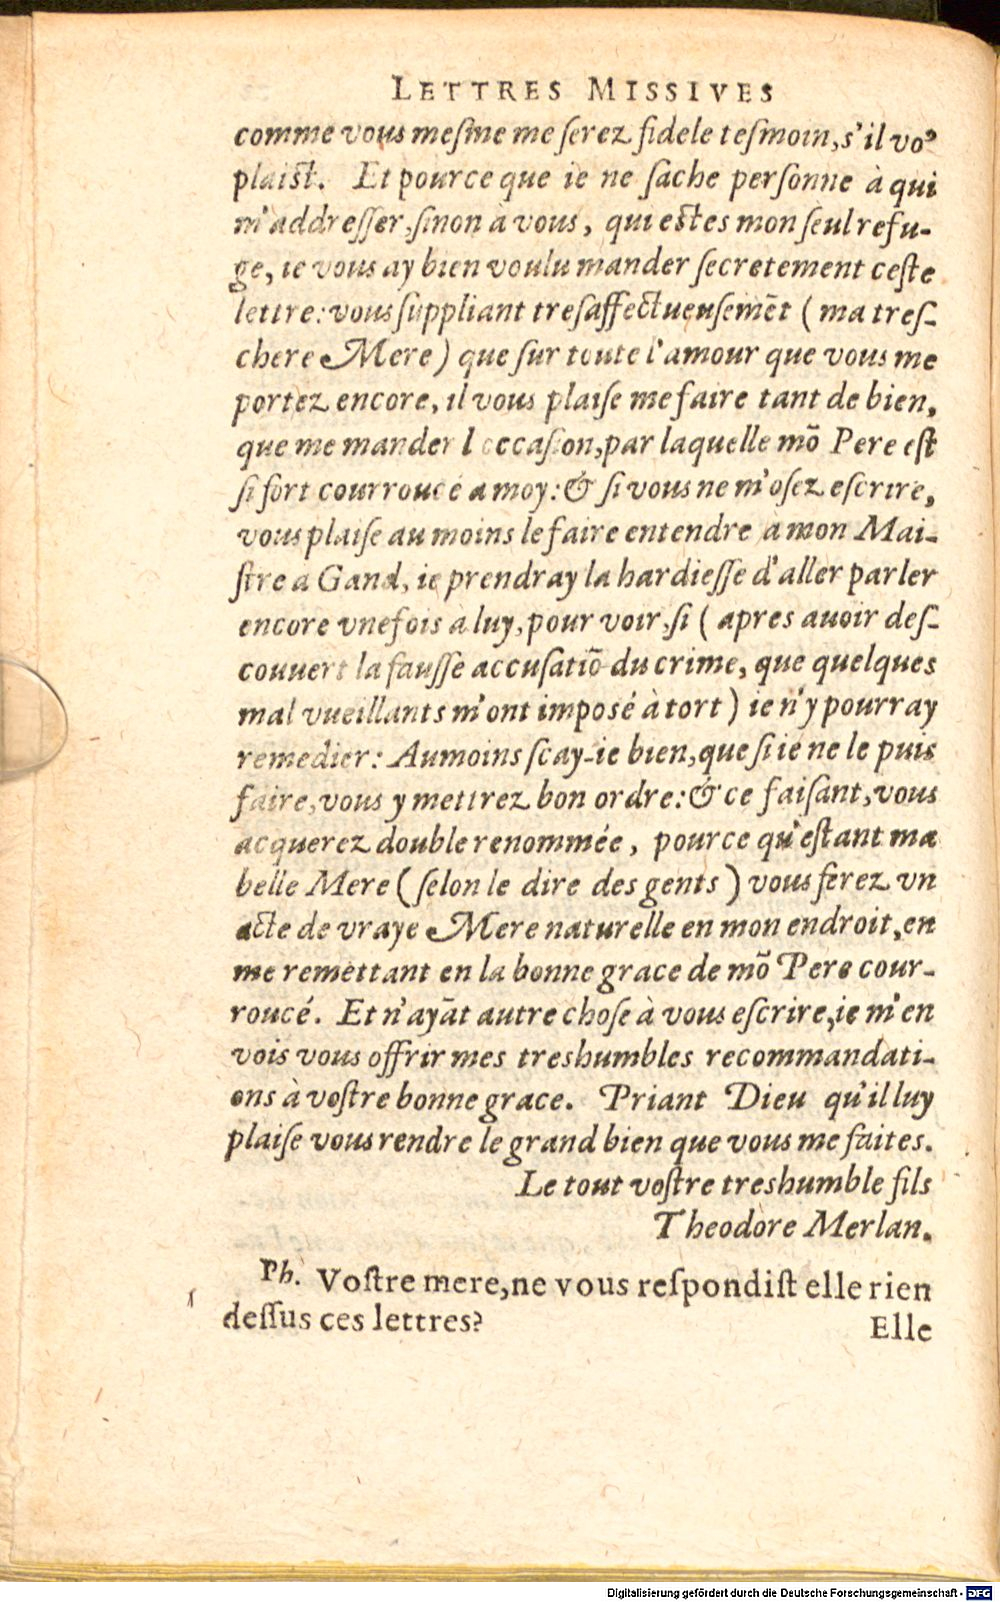 LETTRES MISSIVES
comme vous meſme me ſerez fidele teſmoin, s'il voꝰ
plaiſt. Et pource que ie ne ſache perſonne à qui
m'addreſſer, ſinon à vous, qui eſtes mon ſeul refu-
ge, ie vous ay bien voulu mander ſecretement ceſte
lettre: vous ſuppliant treſaffectueuſemẽt (ma treſ-
chere Mere) que ſur toute l'amour que vous me
portez encore, il vous plaiſe me faire tant de bien,
que me mander l occaſion, par laquelle mõ Pere eſt
ſi fort courroucé a moy: & ſi vous ne m'oſez eſcrire,
vous plaiſe au moins le faire entendre à mon Mai-
ſtre a Gand, ie prendray la hardieſſe d'aller parler
encore vne fois à luy, pour voir, ſi (apres auoir deſ-
couuert la fauſſe accuſatiõ du crime, que quelques
mal vueillants m'ont impoſé à tort) ie n'y pourray
remedier: Aumoins ſcay-ie bien, que ſi ie ne le puis
faire, vous y mettrez bon ordre: & ce faiſant, vous
acquerez double renommée, pource qu'eſtant ma
belle Mere (ſelon le dire des gents) vous ferez vn
acte de vraye Mere naturelle en mon endroit, en
me remettant en la bonne grace de mõ Pere cour-
roucé. Et n'ayãt autre choſe à vous eſcrire, ie m'en
vois vous offrir mes treshumbles recommandati-
ons à voſtre bonne grace. Priant Dieu qu'il luy
plaiſe vous rendre le grand bien que vous me faites.
Le tout voſtre treshumble fils
Theodore Merlan.
Ph. Voſtre mere, ne vous reſpondiſt elle rien
deſſus ces lettres?
Elle
Digitalisierung gefördert durch die Deutsche Forschungsgemeinschaft - DFG